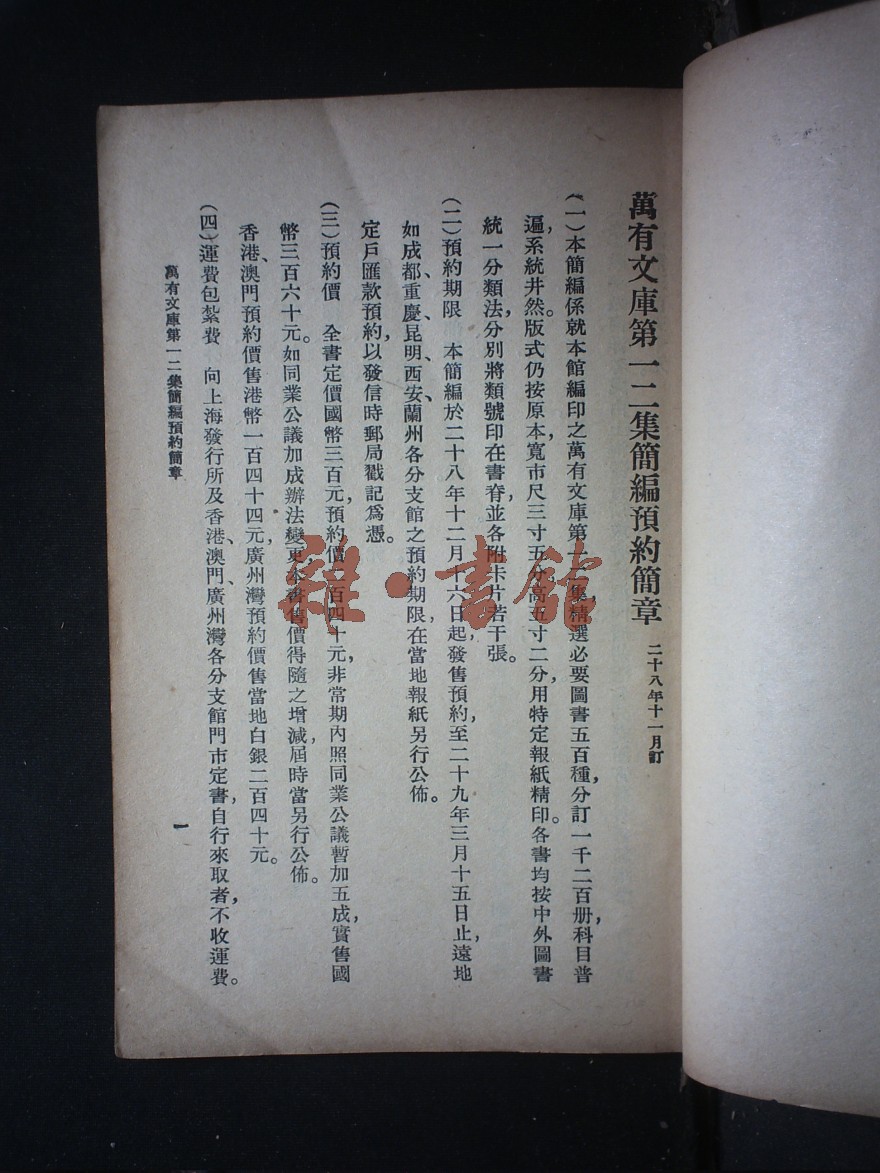 萬有文庫第一二集簡編預約簡章 二十八年十一月訂
（一）本簡編係就本館編印之萬有文庫第一二集，精選必要圖書五百種，分訂一千二百册，科目普
遍，系統井然。版式仍按原本寬市尺三寸五分，高五寸二分，用特定報紙精印。各書均按中外圖書
統一分類法，分別將類號印在書脊，並各附卡片若干張。
（二）預約期限　本簡編於二十八年十二月十六日起發售預約，至二十九年三月十五日止，遠地
如成都、重慶、昆明、西安、蘭州各分支館之預約期限，在當地報紙另行公佈。
定戶匯款預約，以發信時郵局戳記爲憑。
（三）預約價　全書定價國幣三百元，預約價二百四十元，非常期內照同業公議暫加五成，實售國
幣三百六十元。如同業公議加成辦法變更，本書售價得隨之增減，屆時當另行公佈。
香港、澳門預約價售港幣一百四十四元，廣州灣預約價售當地白銀二百四十元。
（四）運費包紮費　向上海發行所及香港、澳門、廣州灣各分支館門市定書，自行來取者，不收運費。
萬有文庫第一二集簡編預約簡章
一
雜·書館